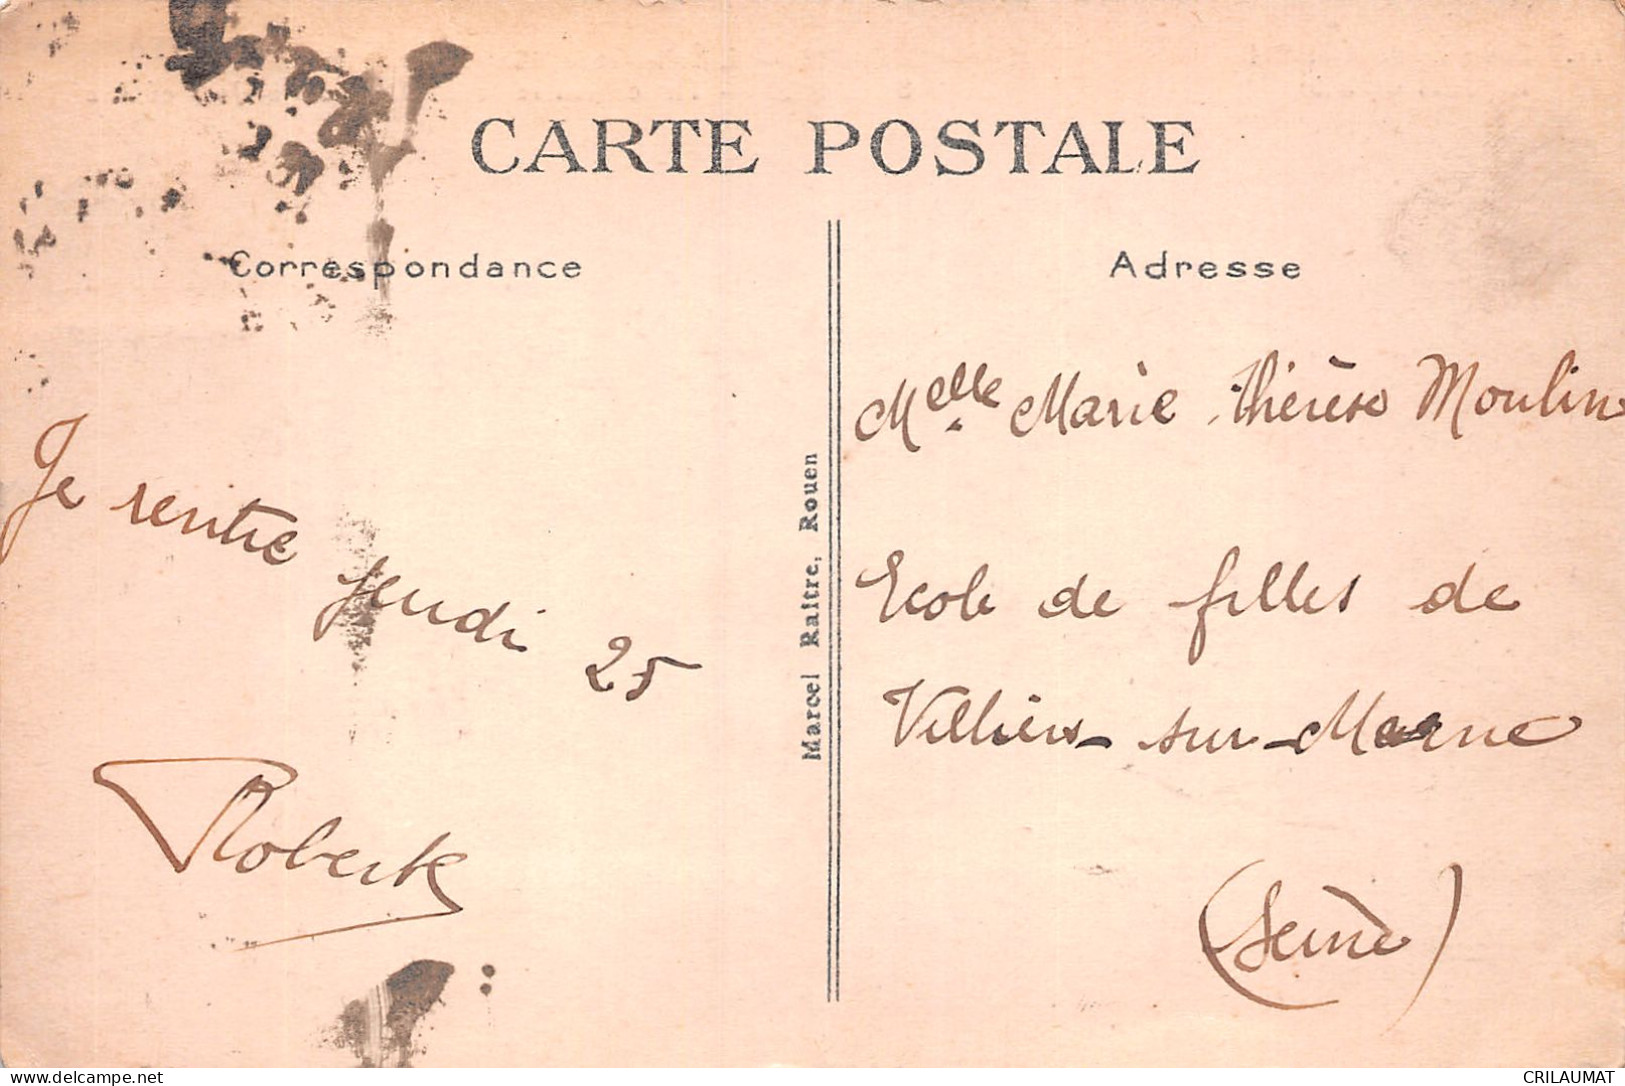 CARTE POSTALE
Correspondance
Adresse
Je rentre
jeudi 25
Robert
Marcel Raître, Rouen
Melle Marie Thérèse Moulin
Ecole de filles de
Villiers-sur-Marne
(Seine)
delcampe.net
CRILAUMAT